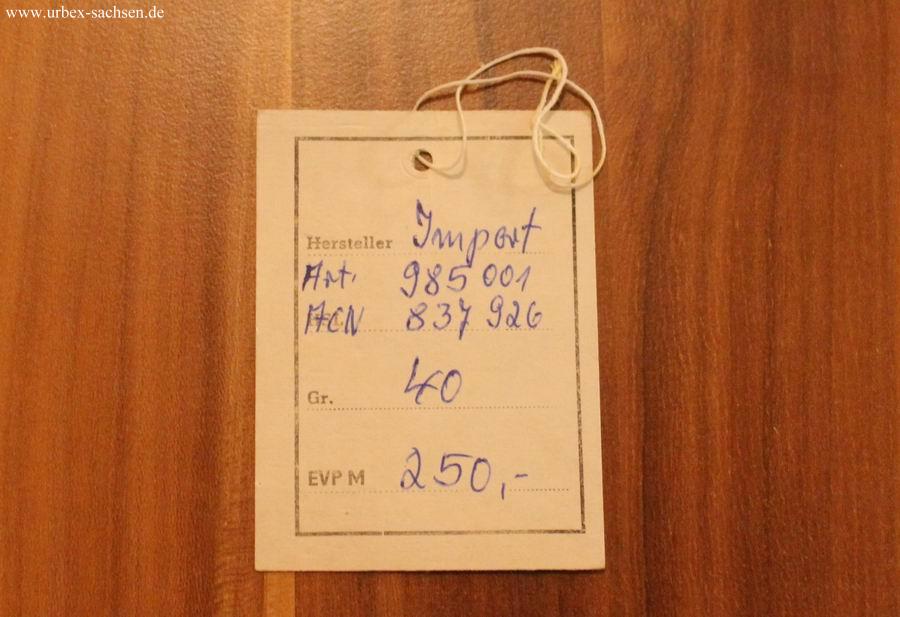 www.urbex-sachsen.de
Hersteller Import
Art. 985 001
ACN 837 926
Gr. 40
EVP M 250,-